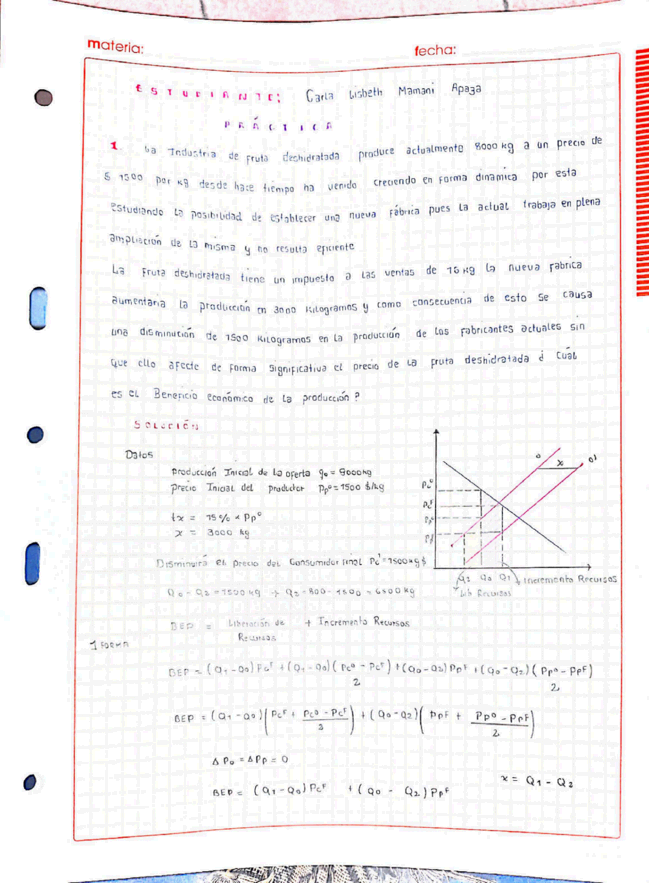 materia: fecha:
ESTUDIANTE: Carla Lisbeth Mamani Apaza
PRÁCTICA
1 La Industria de fruta deshidratada produce actualmente 8000 kg a un precio de
$ 1500 por kg desde hace tiempo ha venido creciendo en forma dinamica por esta
Estudiando la posibilidad de establecer una nueva Fábrica pues la actual trabaja en plena
ampliación de la misma y no resulta eficiente
La Fruta deshidratada tiene un impuesto a las ventas de kg la nueva Fabrica
aumentaria la producción en 3000 kilogramos y como consecuencia de esto se causa
una disminución de 1500 kilogramos en la producción de los fabricantes actuales sin
que ello afecte de forma significativa el precio de la fruta deshidratada ¿ Cuál
es el Beneficio económico de la producción?
SOLUCIÓN
Datos
Producción Inicial de la oferta q₀ = 9000kg
precio Inicial del productor Pp⁰ = 1500 $/kg
tx = 15% * Pp⁰
x = 3000 kg
Disminuirá el precio del Consumidor final Pc¹ = 1500kg$
Q₀ - Q₂ = 1500 kg → Q₂ = 800 - 1500 = 6500kg
BEP = Liberación de + Incremento Recursos
Recursos
o o'
x
Pc⁰
Pcᶠ
Pp⁰
Pᶠ
Q₂ Q₀ Q₁ Incremento Recursos
Lib Recursos
1 FORMA
BEP = (Q₁ - Q₀) Pcᶠ + (Q₁ - Q₀) (Pc⁰ - Pcᶠ) + (Q₀ - Q₂) Ppᶠ + (Q₀ - Q₂) (Pp⁰ - Ppᶠ)
2 2
BEP = (Q₁ - Q₀) (Pcᶠ + Pc⁰ - Pcᶠ / 3) + (Q₀ - Q₂) (Ppᶠ + Pp⁰ - Ppᶠ / 2)
Δ P₀ = Δ Pp = 0
x = Q₁ - Q₂
BEP = (Q₁ - Q₀) Pcᶠ + (Q₀ - Q₂) Ppᶠ